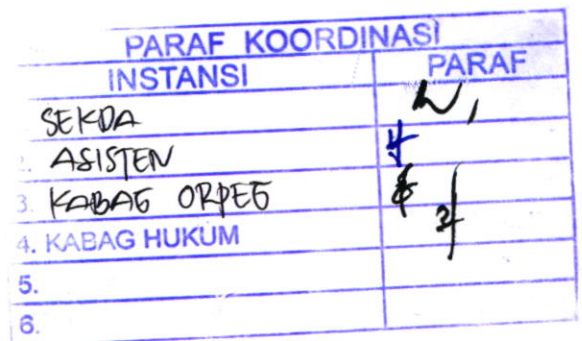 PARAF KOORDINASI
INSTANSI PARAF
SEKDA
2. ASISTEN
3. KABAG ORPEG
4. KABAG HUKUM
5.
6.